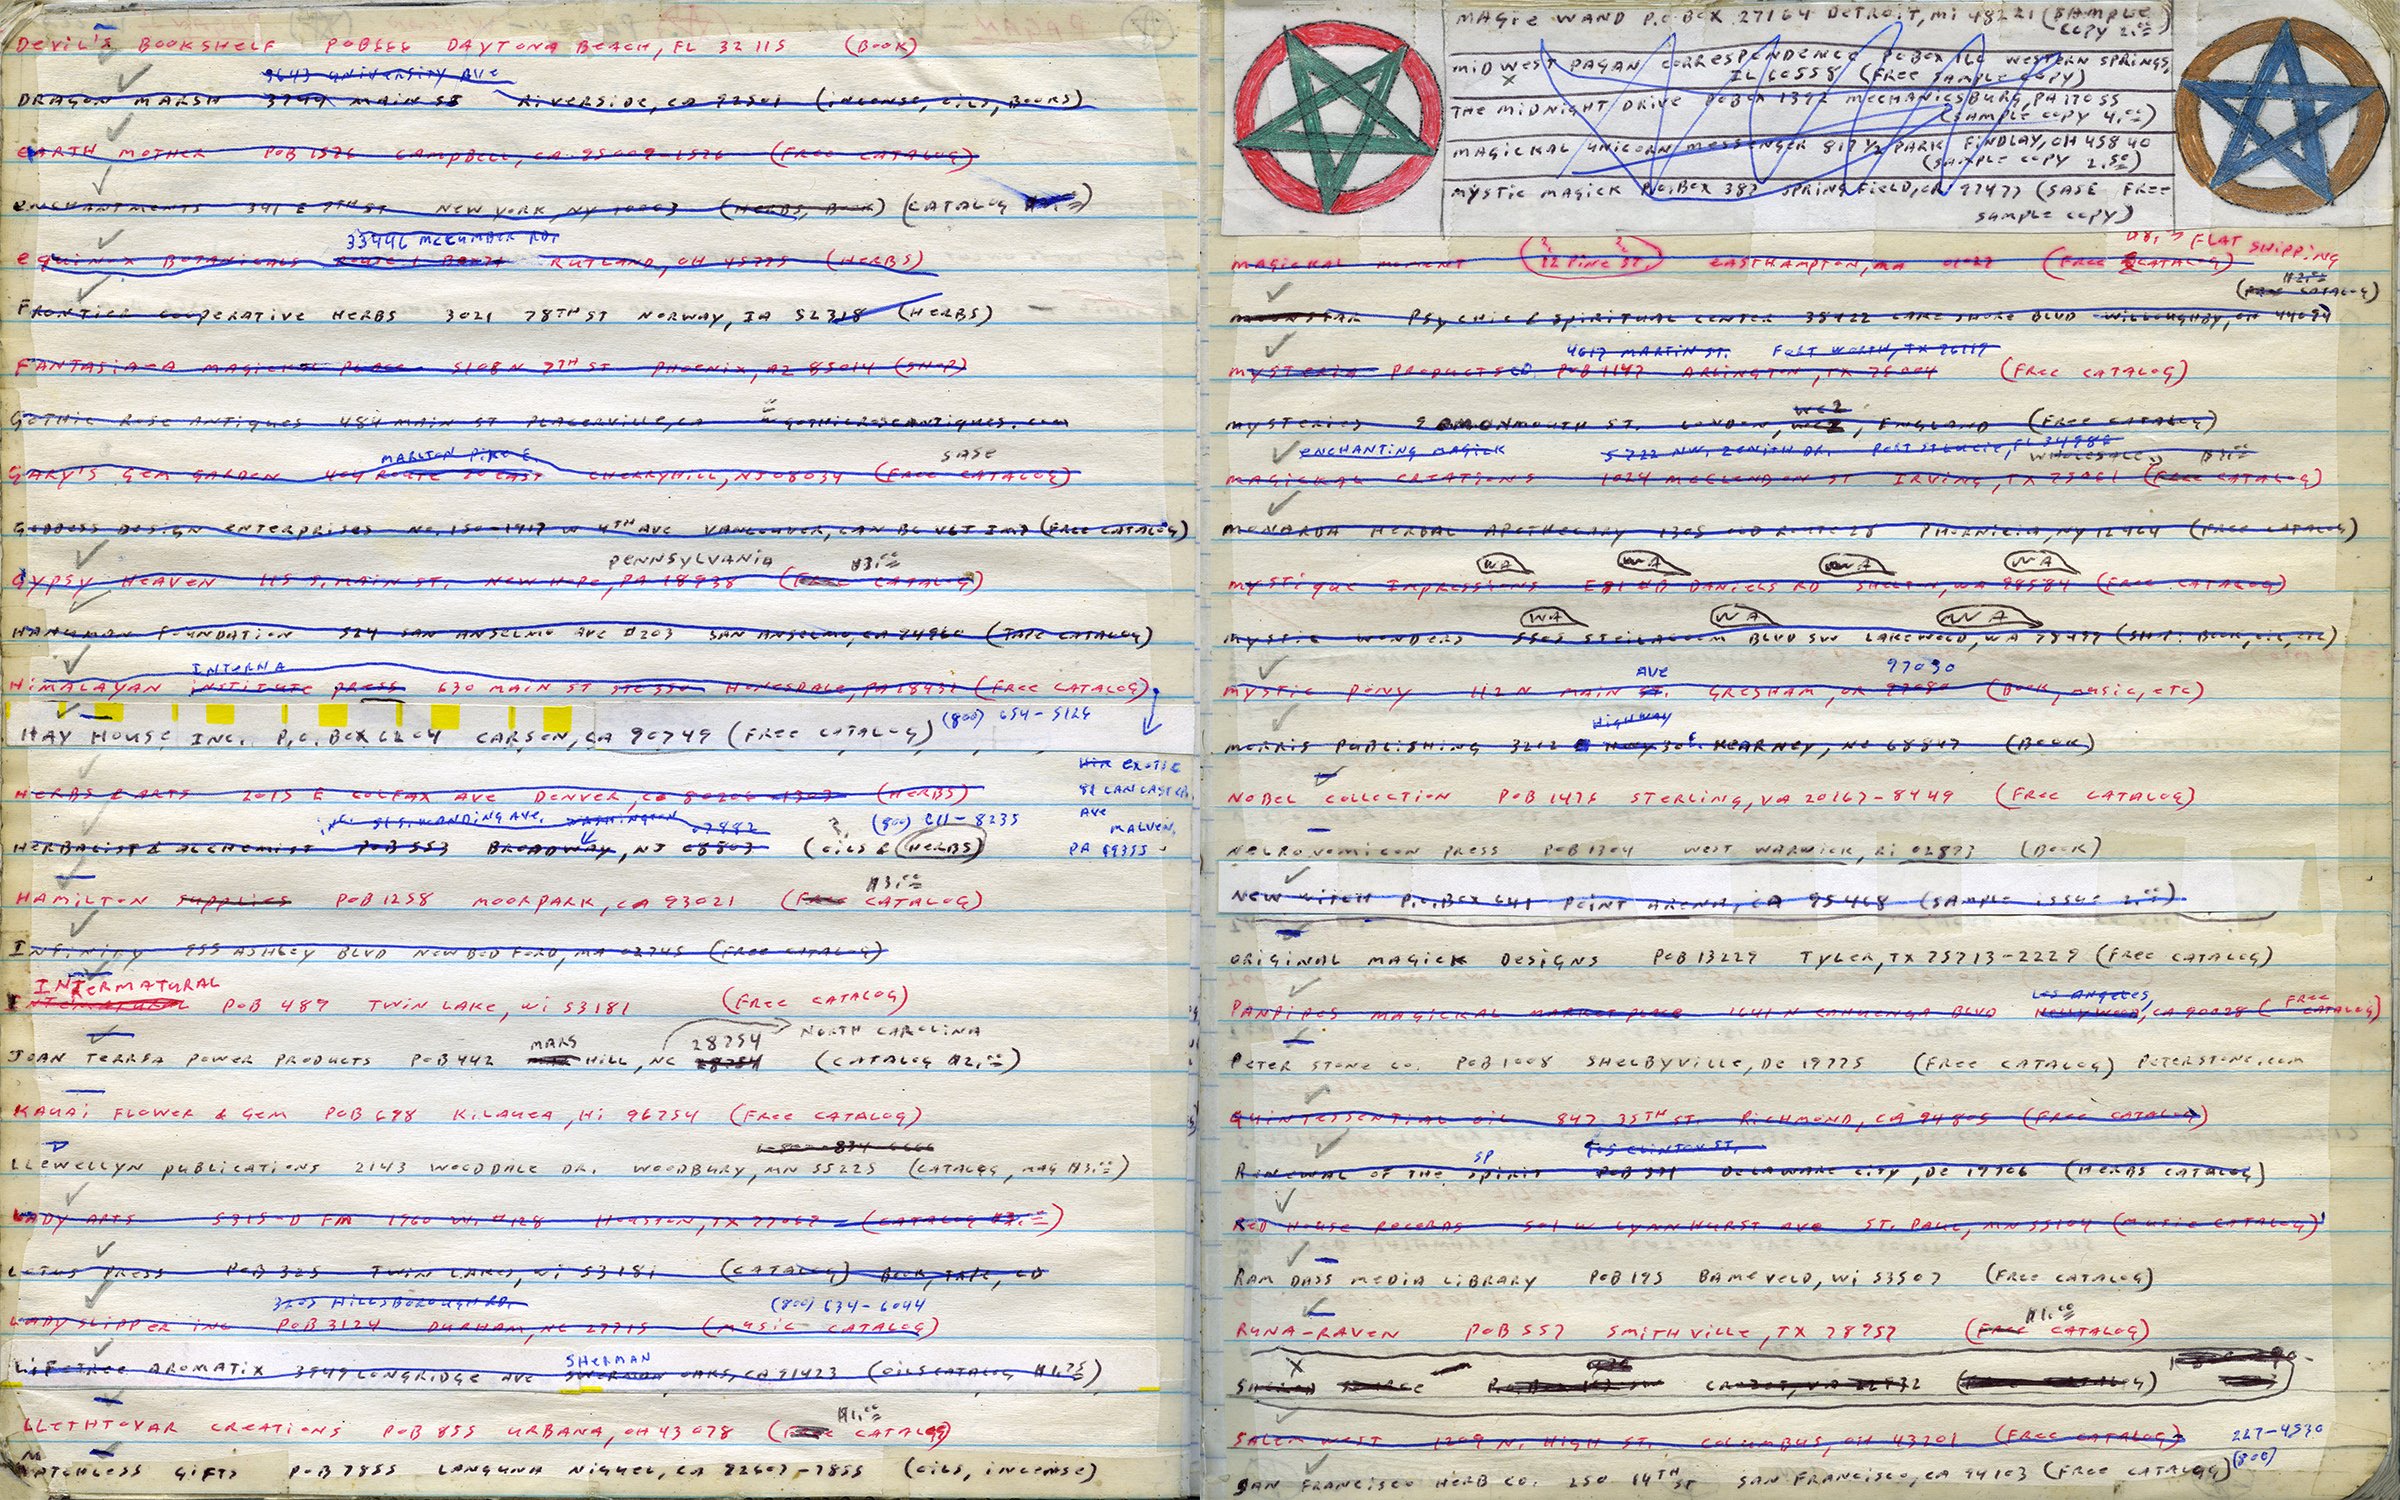 DEVIL'S BOOKSHELF POB 666 DAYTONA BEACH, FL 32115 (BOOK)
9643 UNIVERSITY AVE
DRAGON MARSH 3744 MAIN ST RIVERSIDE, CA 92501 (INCENSE, OILS, BOOKS)
EARTH MOTHER POB 1526 CAMPBELL, CA 95009-1526 (FREE CATALOG)
ENCHANTMENTS 341 E 9TH ST NEW YORK, NY 10003 (HERBS, BOOK) (CATALOG
33446 MCCUMBER RD.
EQUINOX BOTANICALS ROUTE 1 BOX 71 RUTLAND, OH 45775 (HERBS)
FRONTIER COOPERATIVE HERBS 3021 78TH ST NORWAY, IA 52318 (HERBS)
FANTASIA-A MAGICKAL PLACE 5108 N 7TH ST PHOENIX, AZ 85014 (SHOP)
GOTHIC ROSE ANTIQUES 484 MAIN ST PLACERVILLE, CA GOTHICROSEANTIQUES.COM
MARLTON PIKE E. SASE
GARY'S GEM GARDEN 404 ROUTE 70 EAST CHERRYHILL, NJ 08034 (FREE CATALOG)
GODDESS DESIGN ENTERPRISES NO. 150-1917 W 4TH AVE VANCOUVER, CAN BC V6J 1M7 (FREE CATALOG)
PENNSYLVANIA $3.00
GYPSY HEAVEN 115 S. MAIN ST. NEW HOPE, PA 18938 (FREE CATALOG)
HANUMAN FOUNDATION 524 SAN ANSELMO AVE #203 SAN ANSELMO, CA 94960 (TAPE CATALOG)
INTERNA
HIMALAYAN INSTITUTE PRESS 630 MAIN ST STE 350 HONESDALE, PA 18431 (FREE CATALOG)
HAY HOUSE INC. P.O. BOX 6204 CARSON, CA 90749 (FREE CATALOG) (800) 654-5126
HERBS & ARTS 2015 E COLFAX AVE DENVER, CO 80206-1303 (HERBS)
EXOTIC
81 LANCASTER
AVE
MALVERN,
PA 19355
51 S. WANDING AVE. WASHINGTON 07882 ? (800) 611-8235
HERBALIST & ALCHEMIST POB 553 BROADWAY, NJ 08803 (OILS & HERBS)
$3.00
HAMILTON SUPPLIES POB 1258 MOORPARK, CA 93021 (FREE CATALOG)
INFINITY 955 ASHLEY BLVD NEW BEDFORD, MA 02745 (FREE CATALOG)
INTERMATURAL
POB 487 TWIN LAKE, WI 53181 (FREE CATALOG)
MARS 28754 NORTH CAROLINA
JOAN TERESA POWER PRODUCTS POB 442 HILL, NC 28754 (CATALOG $2.00)
KAUAI FLOWER & GEM POB 698 KILAUEA, HI 96754 (FREE CATALOG)
LLEWELLYN PUBLICATIONS 2143 WOODDALE DR. WOODBURY, MN 55225 (CATALOG, MAG $3.00)
LADY ARTS 5315-D FM 1960 W. #128 HOUSTON, TX 77069 (CATALOG $3.00)
LOTUS PRESS POB 325 TWIN LAKES, WI 53181 (CATALOG) BOOK, TAPE, CD
3205 HILLSBOROUGH RD. (800) 634-6044
LADYSLIPPER INC POB 3124 DURHAM, NC 27715 (MUSIC CATALOG)
SHERMAN
LIFETREE AROMATIX 3949 LONGRIDGE AVE SHERMAN OAKS, CA 91423 (OILS CATALOG $1.75)
$1.00
LLETHTOVAR CREATIONS POB 855 URBANA, OH 43078 (FREE CATALOG)
MATCHLESS GIFTS POB 7855 LANGUNA NIGUEL, CA 92607-7855 (OILS, INCENSE)
MAGIC WAND P.O. BOX 27164 DETROIT, MI 48221 (SAMPLE
COPY 2.00)
MIDWEST PAGAN CORRESPONDENCE PO BOX 160 WESTERN SPRINGS,
X IL 60558 (FREE SAMPLE COPY)
THE MIDNIGHT DRIVE PO BOX 1392 MECHANICSBURG, PA 17055
(SAMPLE COPY 4.00)
MAGICKAL UNICORN MESSENGER 817 1/2 PARK FINDLAY, OH 45840
(SAMPLE COPY 2.50)
MYSTIC MAGICK P.O. BOX 383 SPRINGFIELD, OR 97477 (SASE FREE
SAMPLE COPY)
FLAT SHIPPING
MAGICKAL MOMENT 12 PINE ST. EASTHAMPTON, MA 01027 (FREE CATALOG)
$2.00
(FREE CATALOG)
MOONSTAR PSYCHIC & SPIRITUAL CENTER 38422 LAKE SHORE BLVD WILLOUGHBY, OH 44094
4617 MARTIN ST. FORT WORTH, TX 76119
MYSTERIA PRODUCTS CO POB 1147 ARLINGTON, TX 76004 (FREE CATALOG)
WC2
MYSTERIES 9 MONMOUTH ST. LONDON, WC2, ENGLAND (FREE CATALOG)
ENCHANTING MAGICK 5722 NW. ZENITH DR. PORT ST LUCIE, FL 34986
WHOLESALE $3.00
MAGICKAL CREATIONS 1024 MCCLENDON ST IRVING, TX 75061 (FREE CATALOG)
MONARDA HERBAL APOTHECARY 1305 OLD ROUTE 28 PHOENICIA, NY 12464 (FREE CATALOG)
WA WA WA WA
MYSTIQUE IMPRESSIONS E81 #B DANIELS RD SHELTON, WA 98584 (FREE CATALOG)
WA WA WA
MYSTIC WONDERS 5505 STEILACOOM BLVD SW LAKEWOOD, WA 98499 (SHOP: BOOK, OIL, ETC)
AVE 97030
MYSTIC PONY 112 N MAIN ST. GRESHAM, OR 97080 (BOOK, MUSIC, ETC)
HIGHWAY
MORRIS PUBLISHING 3212 E HWY 30 E. KEARNEY, NE 68847 (BOOK)
NOBEL COLLECTION POB 1476 STERLING, VA 20167-8449 (FREE CATALOG)
NECRONOMICON PRESS POB 1304 WEST WARWICK, RI 02893 (BOOK)
NEW WITCH P.O. BOX 641 POINT ARENA, CA 95468 (SAMPLE ISSUE 2.00)
ORIGINAL MAGICK DESIGNS POB 13229 TYLER, TX 75713-2229 (FREE CATALOG)
LOS ANGELES,
PANPIPES MAGICKAL MARKETPLACE 1641 N CAHUENGA BLVD HOLLYWOOD, CA 90028 (FREE CATALOG)
PETER STONE CO. POB 1008 SHELBYVILLE, DE 19975 (FREE CATALOG) PETERSTONE.COM
QUINTESSENTIAL OIL 847 35TH ST. RICHMOND, CA 94805 (FREE CATALOG)
SP CLINTON ST.
RENEWAL OF THE SPIRIT POB 371 DELAWARE CITY, DE 19706 (HERBS CATALOG)
RED HOUSE RECORDS 501 W LYNNHURST AVE ST. PAUL, MN 55104 (MUSIC CATALOG)
RAM DASS MEDIA LIBRARY POB 195 BAMEVELD, WI 53507 (FREE CATALOG)
$1.00
RUNA-RAVEN POB 557 SMITHVILLE, TX 78957 (FREE CATALOG)
X
SACRED SOURCE CROZET, VA 22932
SALEM WEST 1209 N. HIGH ST. COLUMBUS, OH 43201 (FREE CATALOG) 227-4530
SAN FRANCISCO HERB CO. 250 14TH ST SAN FRANCISCO, CA 94103 (FREE CATALOG) (800)